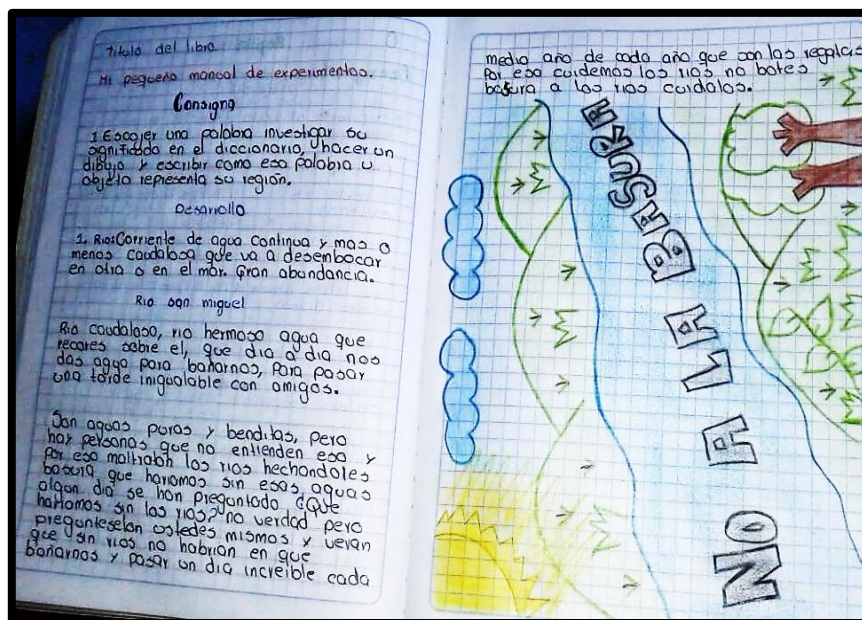 Titulo del libro
Mi pequeño manual de experimentos.
Consigna
1 Escojer una palabra investigar su
significado en el diccionario, hacer un
dibujo y escribir como esa palabra u
objeto representa su región.
Desarrollo
1. Rio: Corriente de agua continua y mas o
menos caudalosa que va a desembocar
en otra o en el mar. Gran abundancia.
Rio san miguel
Rio caudaloso, rio hermoso agua que
recores sobre el, que dia a dia nos
das agua para bañarnos, para pasar
una tarde inigualable con amigos.
Son aguas puras y benditas, pero
hay personas que no entienden eso y
por eso maltratan los rios hechandoles
basura que hariamos sin esas aguas
algun dia se han preguntado ¿Que
hariamos sin los rios? no verdad pero
pregunteselan ustedes mismos y veran
que sin rios no habrian en que
bañarnos y pasar un dia increible cada
medio año de cada año que son las regalias
Por eso cuidemos los rios no botes
basura a los rios cuidalos.
NO A LA BASURA